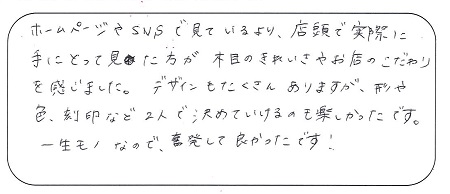 ホームページやSNSで見ているより、店頭で実際に
手にとって見た方が 木目のきれいさやお店のこだわり
を感じました。デザインもたくさん ありますが、形や
色、刻印など 2人で決めていけるのも楽しかったです。
一生モノ なので、奮発して 良かったです!